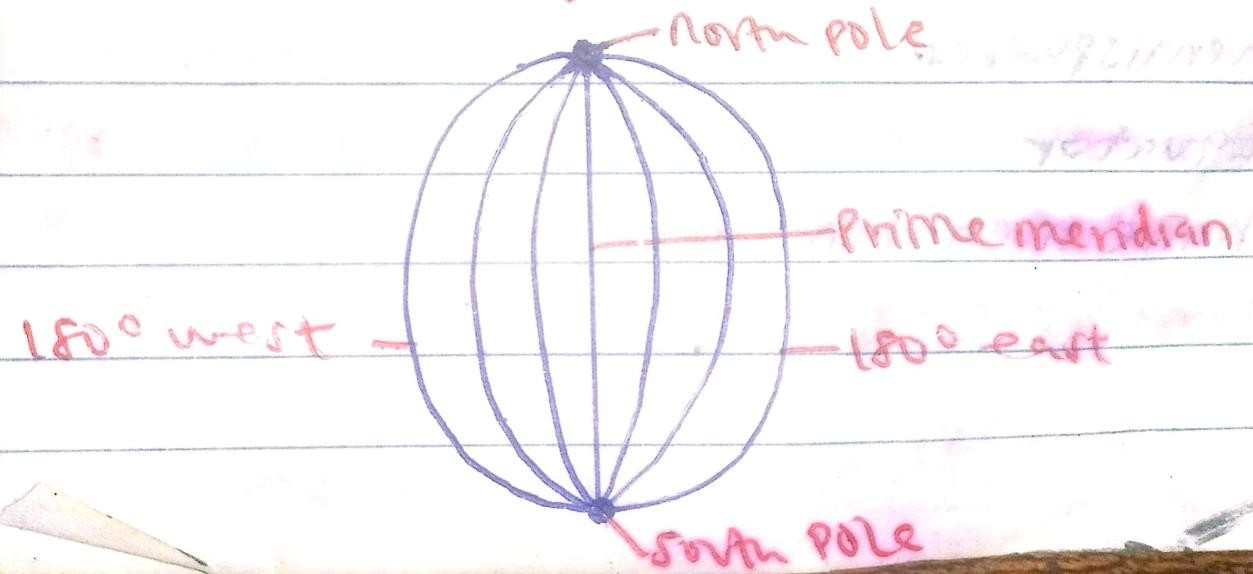 North pole
Prime meridian
180° west
180° east
South pole